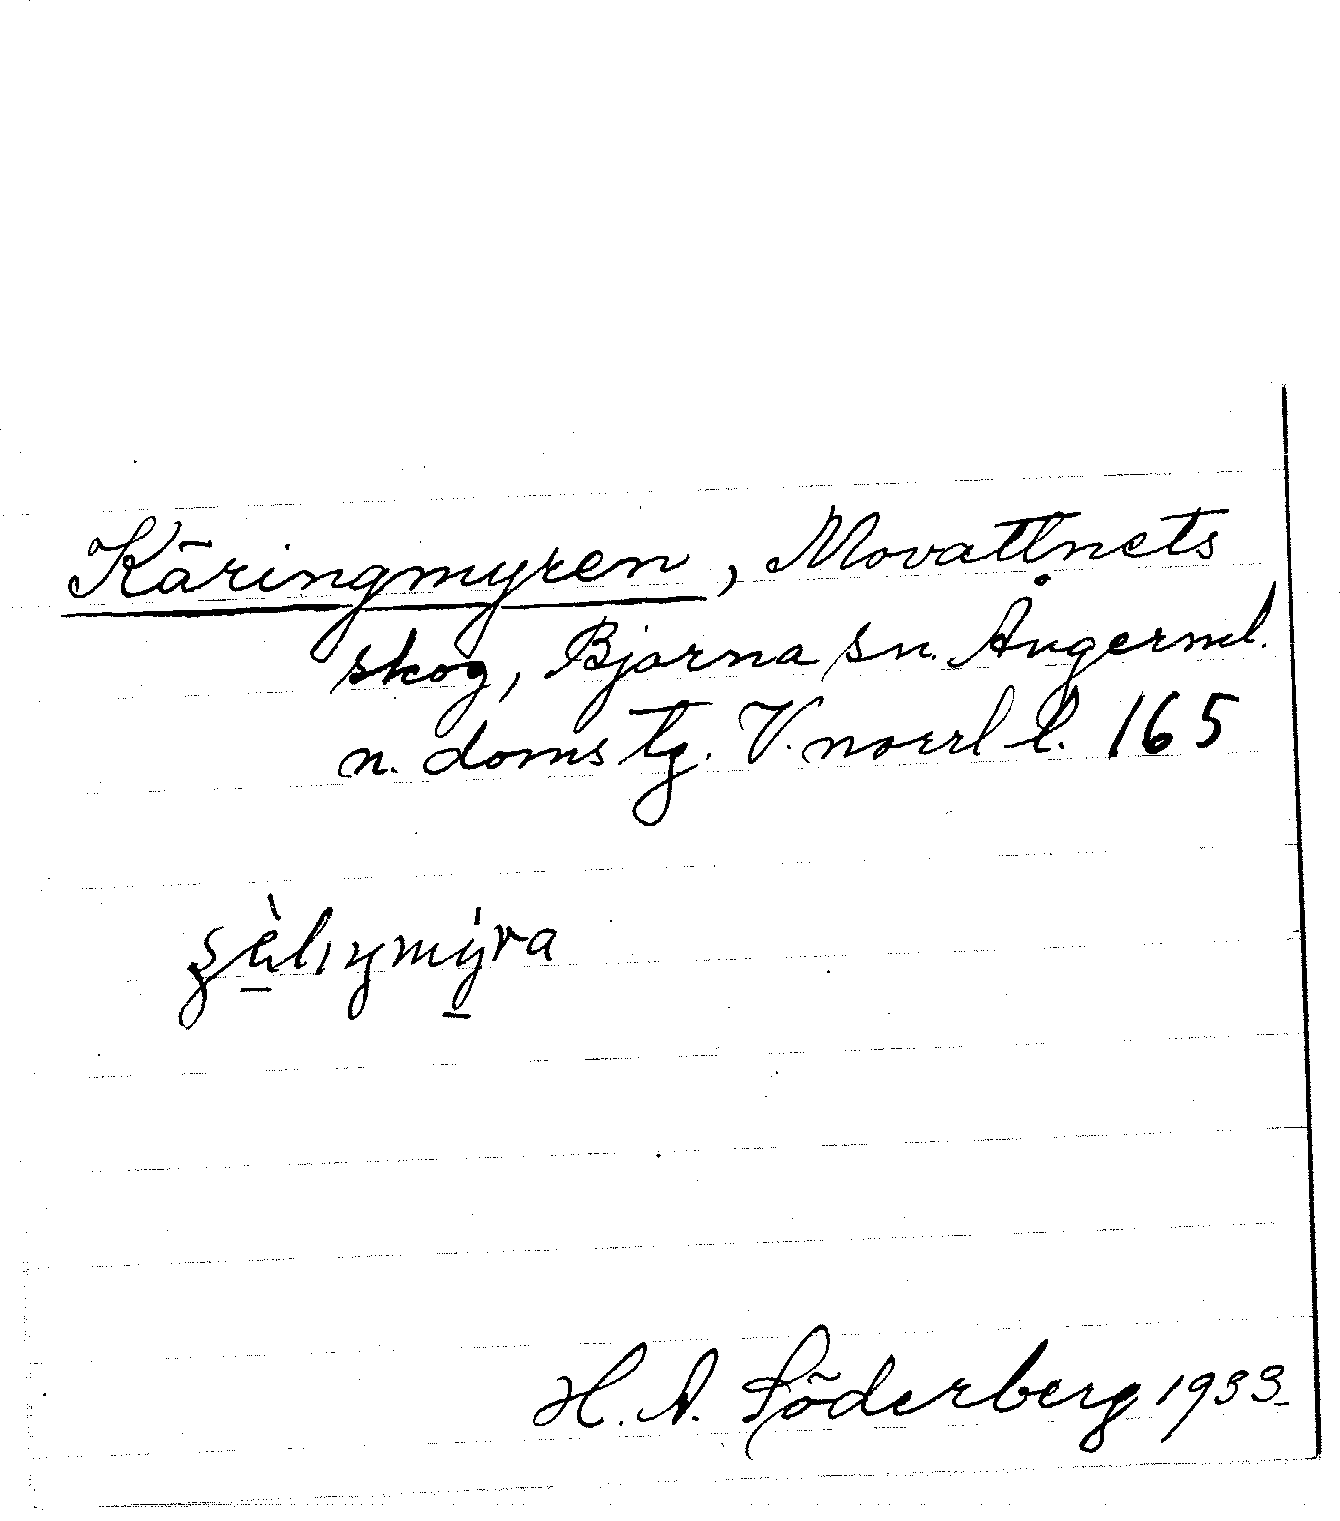 Käringmyren, Movattnets
skog, Bjärna sn. Ångerml.
n. doms tg. V. norrl l. 165
H. A. Söderberg 1933